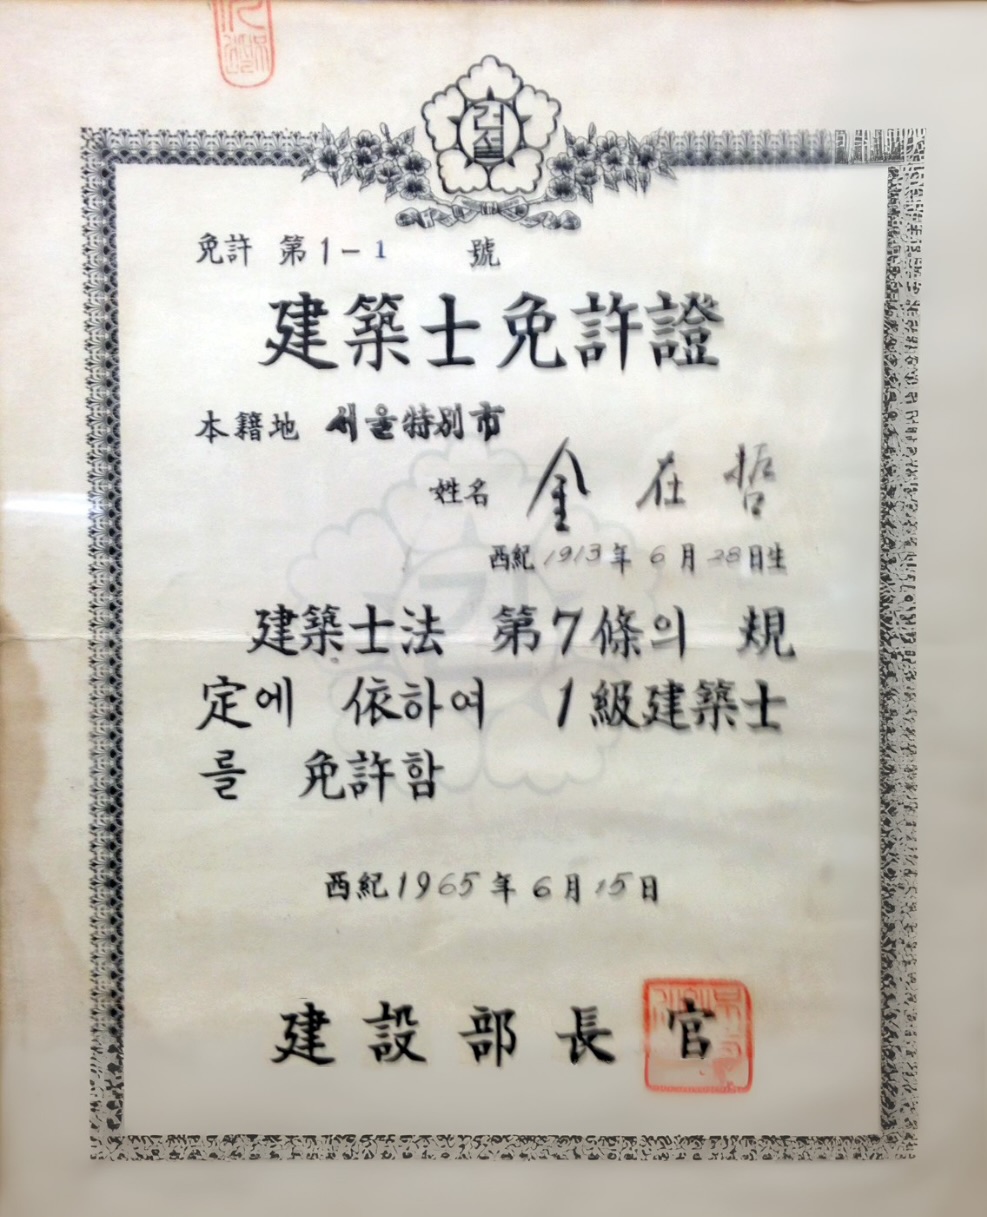 건설
免許 第1-1 號
建築士免許證
本籍地 서울特別市
姓名 金在哲
西紀 1913年 6月 28日生
建築士法 第7條의 規
定에 依하여 1級建築士
를 免許함
西紀1965年 6月 15日
建設部長官